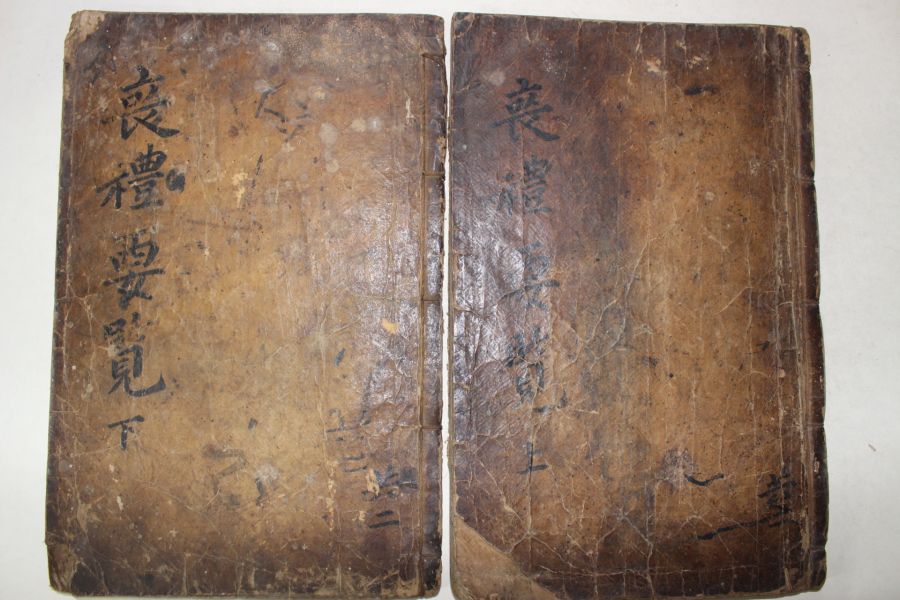 喪禮要覽 下
共二
喪禮要覽 上